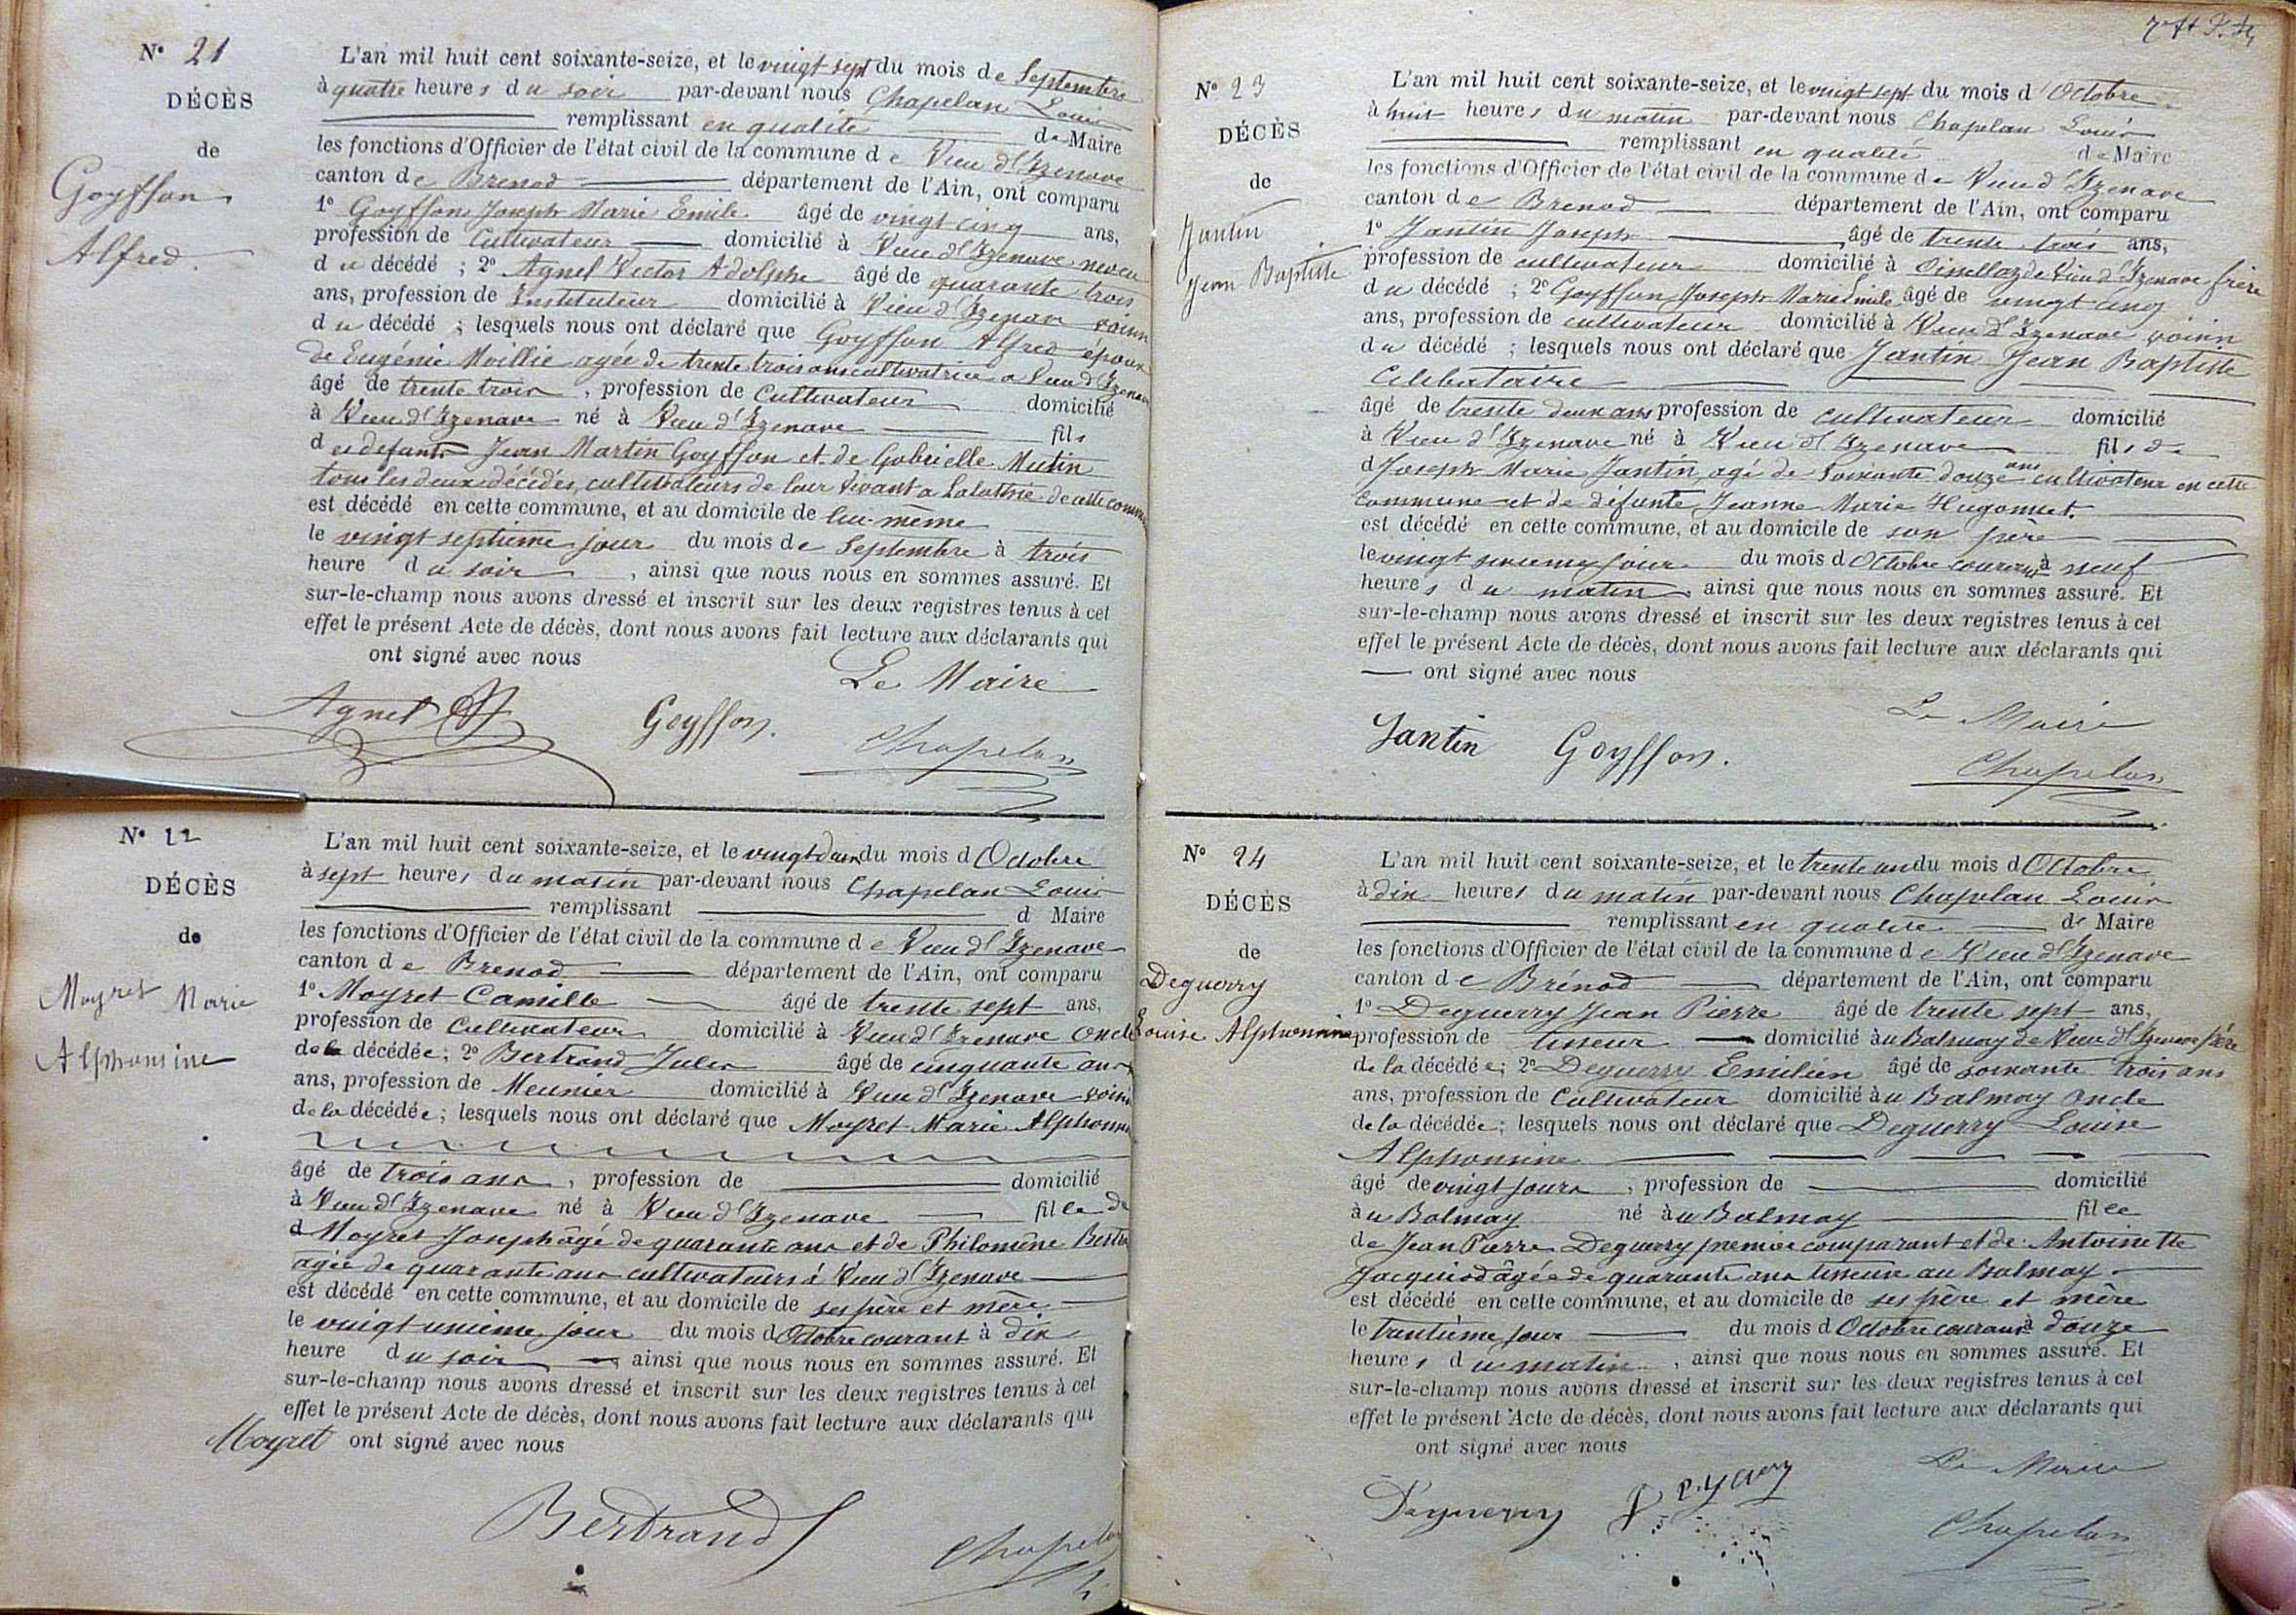 N° 21
DÉCÈS
de
Goyffon
Alfred.
L'an mil huit cent soixante-seize, et le vingt sept du mois de Septembre
à quatre heures du soir par-devant nous Chapelan Louis
remplissant en qualité de Maire
les fonctions d'Officier de l'état civil de la commune de Vieu d'Izenave
canton de Brenod département de l'Ain, ont comparu
1° Goyffon Joseph Marie Emile âgé de vingt cinq ans,
profession de Cultivateur domicilié à Vieu d'Izenave neveu
du décédé ; 2° Agnel Victor Adolphe âgé de quarante trois
ans, profession de Instituteur domicilié à Vieu d'Izenave voisin
du décédé ; lesquels nous ont déclaré que Goyffon Alfred époux
de Eugénie Moellie agée de trente trois ans cultivatrice a Vieu d'Izenave
âgé de trente trois , profession de Cultivateur domicilié
à Vieu d'Izenave né à Vieu d'Izenave fils
des defunts Jean Martin Goyffon et de Gabrielle Mutin
tous les deux décédés, cultivateurs de leur vivant a de cette commune
est décédé en cette commune, et au domicile de lui-même
le vingt septième jour du mois de Septembre à trois
heure du soir , ainsi que nous nous en sommes assuré. Et
sur-le-champ nous avons dressé et inscrit sur les deux registres tenus à cet
effet le présent Acte de décès, dont nous avons fait lecture aux déclarants qui
ont signé avec nous
Le Maire
Agnel Goyffon. Chapelan
N° 22
DÉCÈS
de
Moyret Marie
Alphonsine
L'an mil huit cent soixante-seize, et le vingt deux du mois d'Octobre
à sept heures du matin par-devant nous Chapelan Louis
remplissant d Maire
les fonctions d'Officier de l'état civil de la commune de Vieu d'Izenave
canton de Brenod département de l'Ain, ont comparu
1° Moyret Camille âgé de trente sept ans,
profession de Cultivateur domicilié à Vieu d'Izenave oncle
de la décédée; 2° Bertrand Jules âgé de cinquante ans
ans, profession de Meunier domicilié à Vieu d'Izenave voisin
de la décédée; lesquels nous ont déclaré que Moyret Marie Alphonsine
âgé de trois ans , profession de domicilié
à Vieu d'Izenave né à Vieu d'Izenave fille de
d Moyret Joseph âgé de quarante ans et de Philomène Bertrand
agée de quarante ans cultivateurs à Vieu d'Izenave
est décédé en cette commune, et au domicile de ses père et mère
le vingt unième jour du mois d'Octobre courant à dix
heure du soir ainsi que nous nous en sommes assuré. Et
sur-le-champ nous avons dressé et inscrit sur les deux registres tenus à cet
effet le présent Acte de décès, dont nous avons fait lecture aux déclarants qui
Moyret ont signé avec nous
Bertrand Chapelan
N° 23
DÉCÈS
de
Jantin
Jean Baptiste
L'an mil huit cent soixante-seize, et le vingt sept du mois d'Octobre
à huit heures du matin par-devant nous Chapelan Louis
remplissant en qualité de Maire
les fonctions d'Officier de l'état civil de la commune de Vieu d'Izenave
canton de Brenod département de l'Ain, ont comparu
1° Jantin Joseph âgé de trente trois ans,
profession de cultivateur domicilié à Oisellaz de Vieu d'Izenave frère
du décédé ; 2° Goyffon Joseph Marie Emile âgé de vingt cinq
ans, profession de cultivateur domicilié à Vieu d'Izenave voisin
du décédé ; lesquels nous ont déclaré que Jantin Jean Baptiste
Célibataire
âgé de trente deux ans profession de cultivateur domicilié
à Vieu d'Izenave né à Vieu d'Izenave fils de
d Joseph Marie Jantin, agé de soixante douze ans cultivateur en cette
Commune et de défunte Jeanne Marie Hugonnet.
est décédé en cette commune, et au domicile de son frère
le vingt sixieme jour du mois d'Octobre courant à neuf
heures du matin ainsi que nous nous en sommes assuré. Et
sur-le-champ nous avons dressé et inscrit sur les deux registres tenus à cet
effet le présent Acte de décès, dont nous avons fait lecture aux déclarants qui
ont signé avec nous
Le Maire
Jantin Goyffon. Chapelan
N° 24
DÉCÈS
de
Deguerry
Louise Alphonsine
L'an mil huit cent soixante-seize, et le trente un du mois d'Octobre
à dix heures du matin par-devant nous Chapelan Louis
remplissant en qualité de Maire
les fonctions d'Officier de l'état civil de la commune de Vieu d'Izenave
canton de Brénod département de l'Ain, ont comparu
1° Deguerry Jean Pierre âgé de trente sept ans,
profession de tisseur domicilié au Balmay de Vieu d'Izenave père
de la décédée; 2° Deguerry Emilien âgé de soixante trois ans
ans, profession de Cultivateur domicilié au Balmay oncle
de la décédée; lesquels nous ont déclaré que Deguerry Louise
Alphonsine
âgé de vingt jours , profession de domicilié
à u Balmay né à u Balmay fille
de Jean Pierre Deguerry premier comparant et de Antoinette
Jacquiod âgée de quarante ans tisseuse au Balmay
est décédé en cette commune, et au domicile de ses père et mère
le trentième jour du mois d'Octobre courant à douze
heures du matin , ainsi que nous nous en sommes assuré. Et
sur-le-champ nous avons dressé et inscrit sur les deux registres tenus à cet
effet le présent Acte de décès, dont nous avons fait lecture aux déclarants qui
ont signé avec nous
Le Maire
Deguerry Chapelan